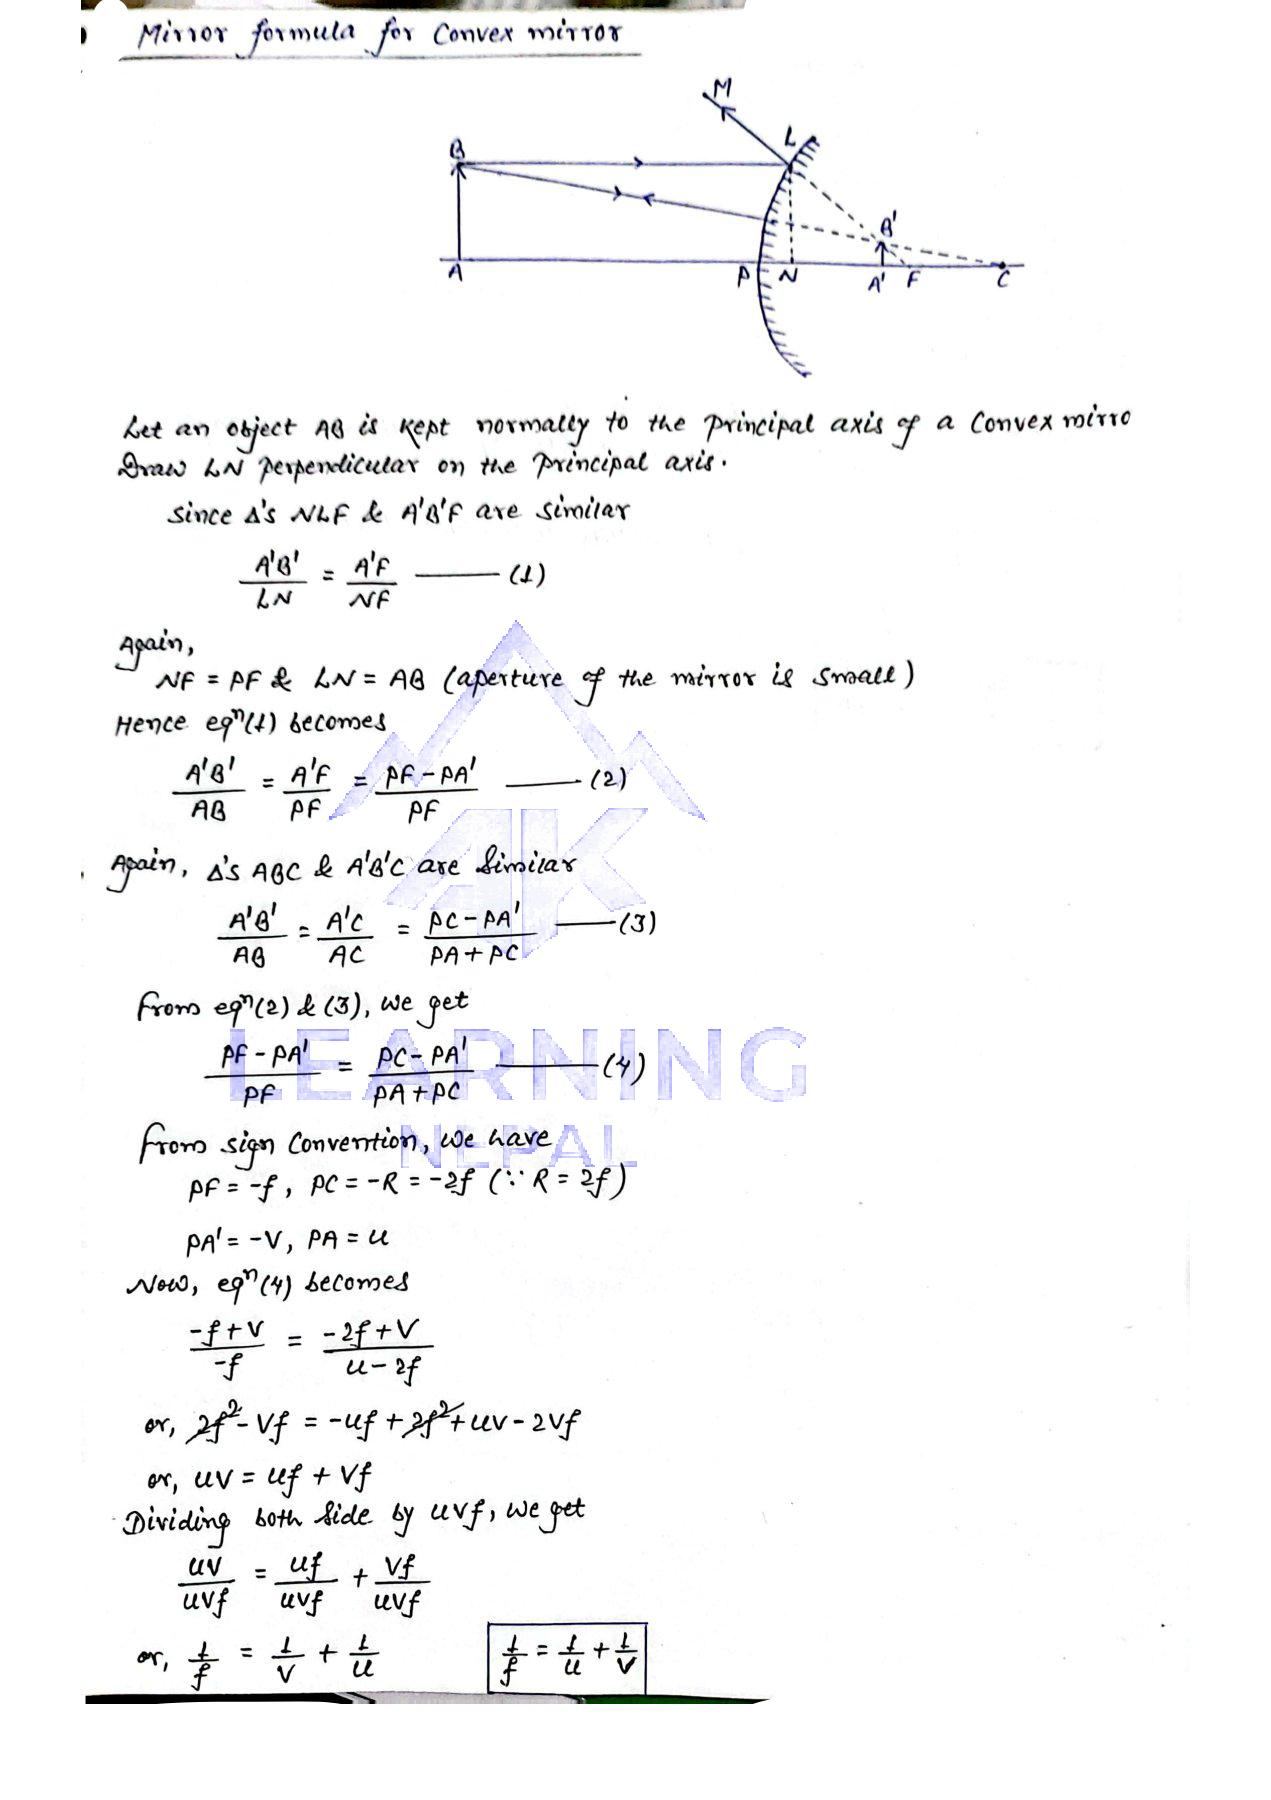 Mirror formula for Convex mirror
M
L
B
B'
A
P
N
A'
F
C
Let an object AB is kept normally to the principal axis of a Convex mirro
Draw LN perpendicular on the principal axis.
Since Δ's NLF & A'B'F are similar
A'B'/LN = A'F/NF —— (1)
Again,
NF = PF & LN = AB (aperture of the mirror is small)
Hence eqⁿ(1) becomes
A'B'/AB = A'F/PF = PF - PA'/PF —— (2)
Again, Δ's ABC & A'B'C are similar
A'B'/AB = A'C/AC = PC - PA'/PA + PC —— (3)
From eqⁿ(2) & (3), we get
PF - PA'/PF = PC - PA'/PA + PC —— (4)
From sign convention, we have
PF = -f, PC = -R = -2f (∵ R = 2f)
PA' = -V, PA = u
Now, eqⁿ(4) becomes
-f + V/-f = -2f + V/u - 2f
or, 2f² - Vf = -uf + 2f² + uv - 2Vf
or, uv = uf + Vf
Dividing both side by uvf, we get
uv/uvf = uf/uvf + Vf/uvf
or, 1/f = 1/V + 1/u
1/f = 1/u + 1/V
AK
LEARNING
NEPAL